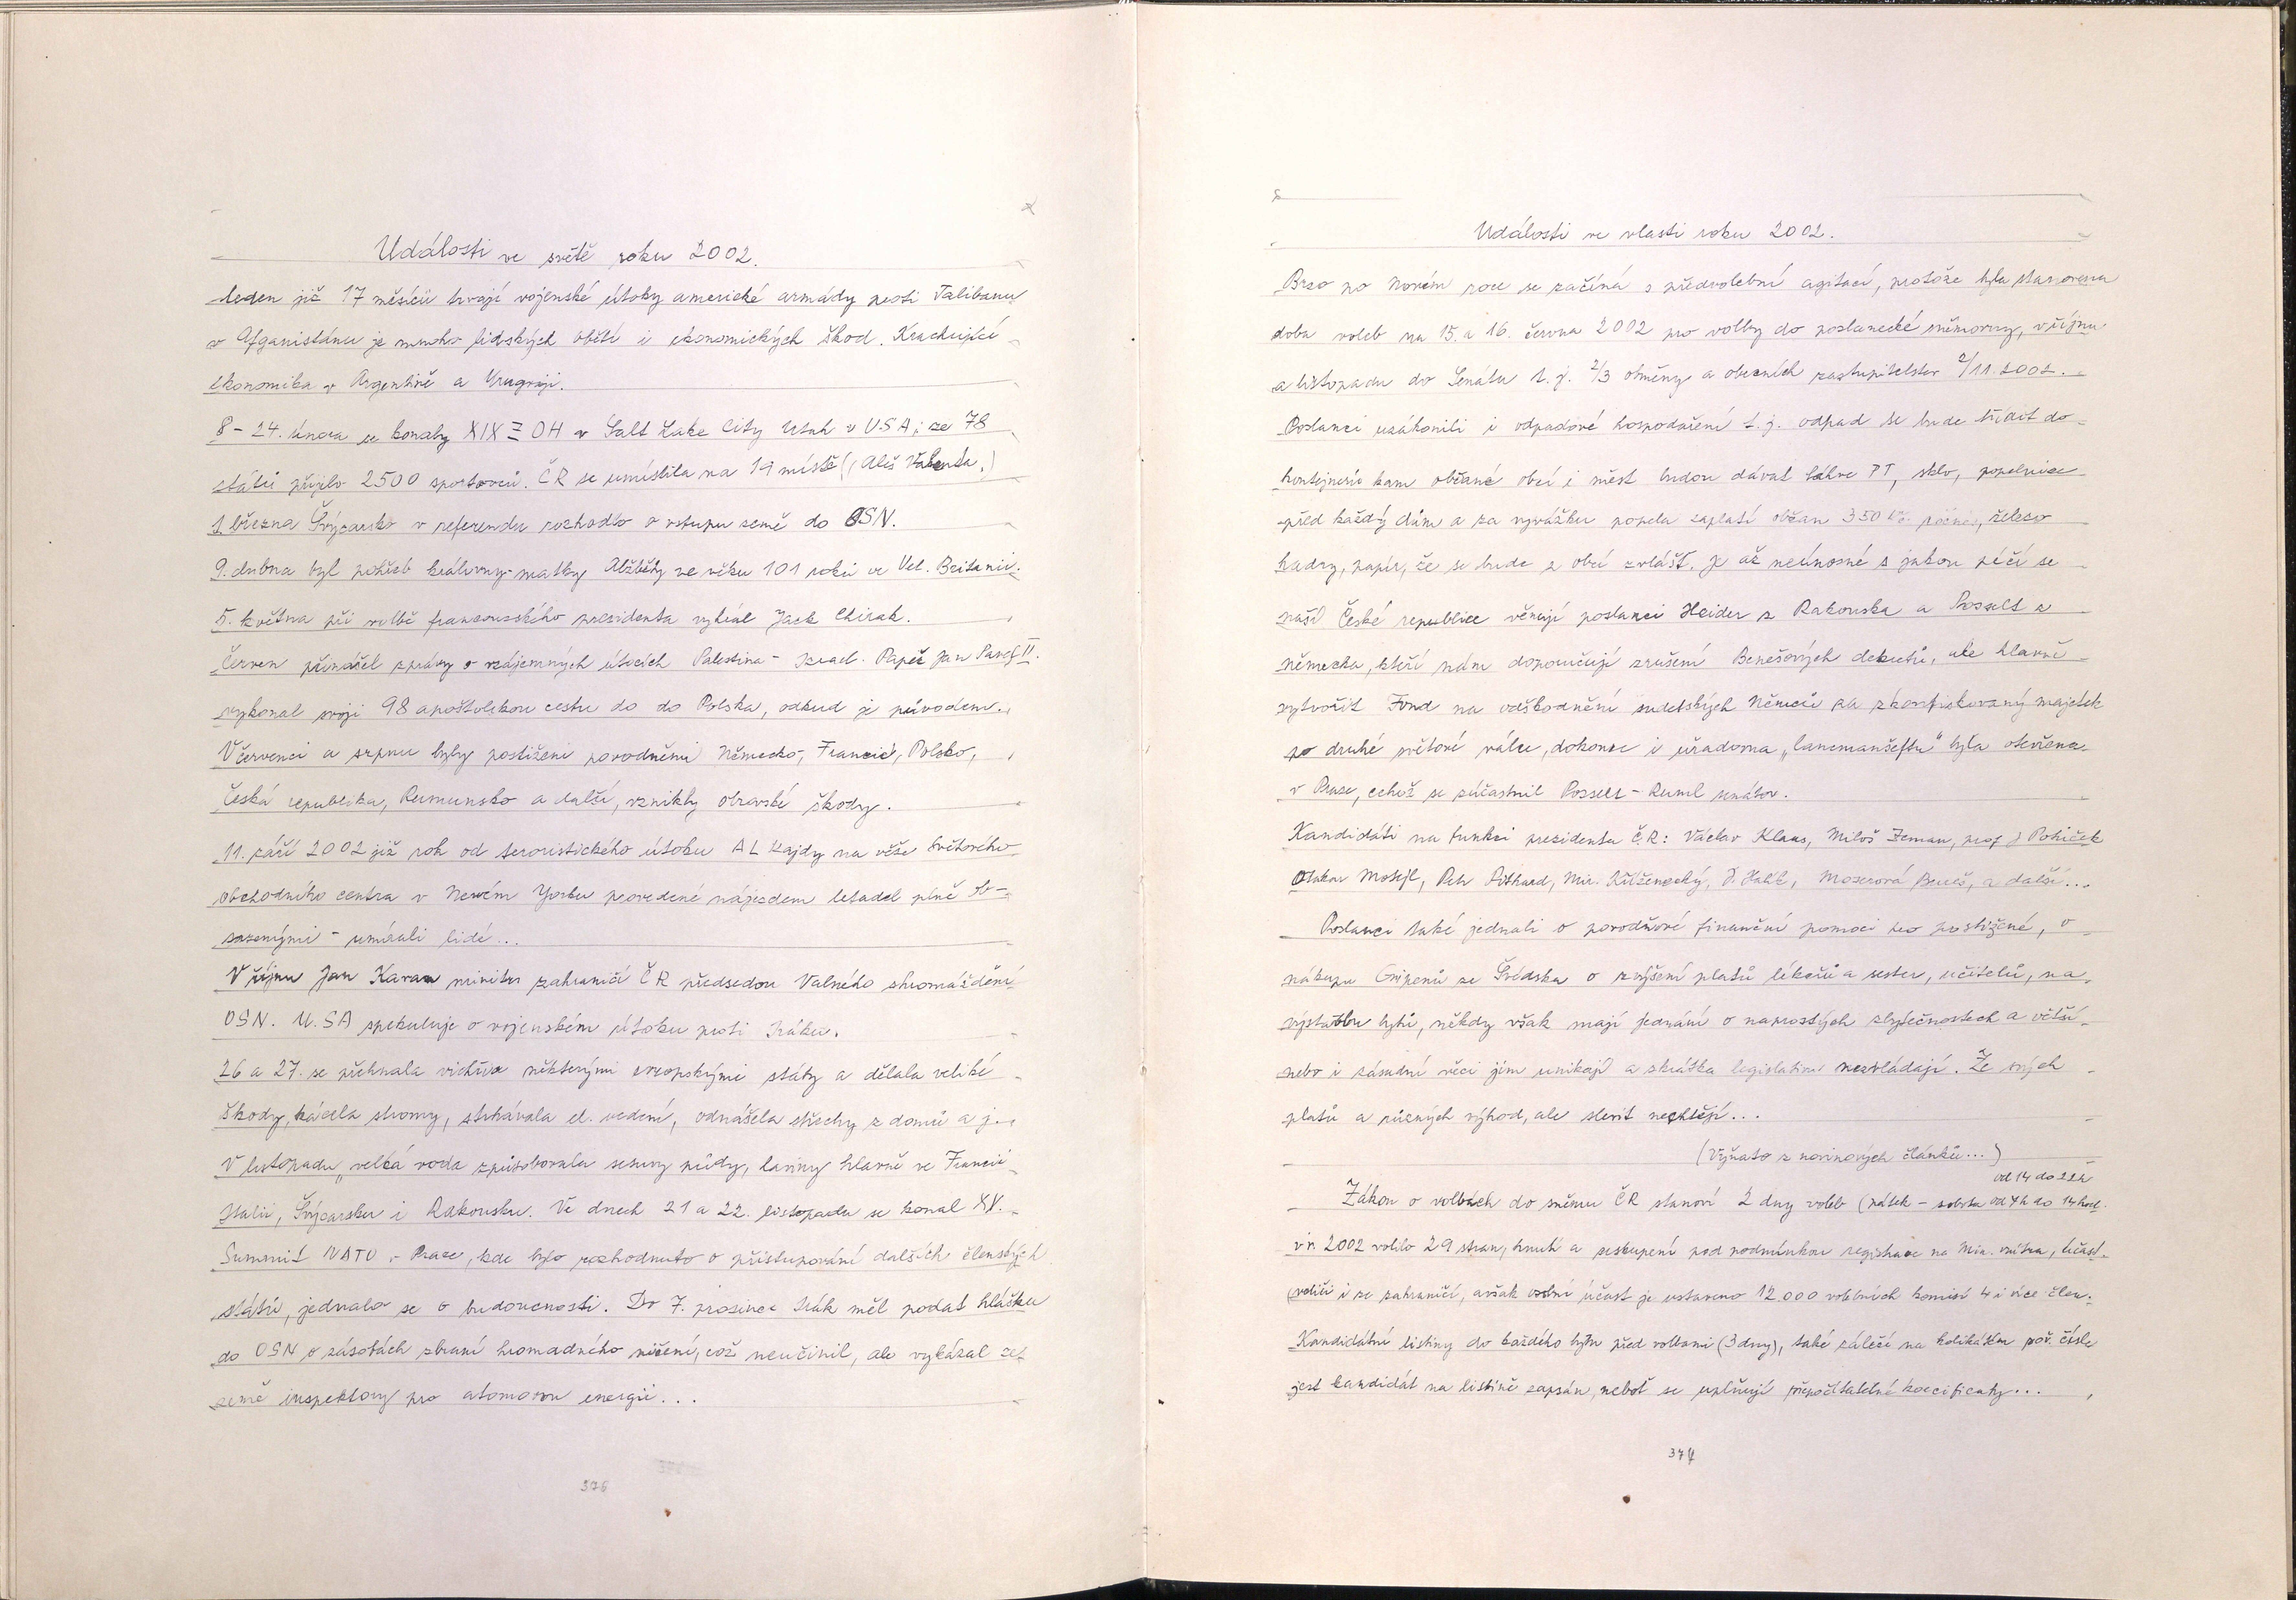 Události ve světě roku 2002.
Leden již 17 měsíců trvají vojenské útoky americké armády proti Talibanu
v Afganistánu je mnoho lidských obětí i ekonomických škod. Krachující
ekonomika v Argentině a Urugvaji.
8-24. února se konaly XIX OH v Salt Lake City Utah v U.S.A; ze 78
států přijelo 2500 sportovců. ČR se umístila na 19 místě (Aleš Valenta.)
1. března Švýcarsko v referendu rozhodlo o vstupu země do OSN.
9. dubna byl pohřeb královny-matky Alžběty ve věku 101 roků ve Vel. Británii.
5. května při volbě francouzského presidenta vyhrál Jack Chirak.
Červen přinášel zprávy o vzájemných útocích Palestina - Izrael. Papež Jan Pavel II.
vykonal svoji 98 apoštolskou cestu do do Polska, odkud je původem.
V červenci a srpnu byly postiženi povodněmi Německo, Francie, Polsko,
Česká republika, Rumunsko a další, vznikly obrovské škody.
11. září 2002 již rok od teroristického útoku AL Kajdy na věže Světového
obchodního centra v Newém Yorku provedené nájezdem letadel plně ob-
sazenými - umírali lidé...
V říjnu Jan Kavan ministr zahraničí ČR předsedou Valného shromáždění
OSN. U.SA spekuluje o vojenském útoku proti Iráku.
26 a 27. se přehnala vichřice některými evropskými státy a dělala veliké
škody, kácela stromy, strhávala el. vedení, odnášela střechy z domů a j.
V listopadu „velká voda způsobovala sesuvy půdy, laviny hlavně ve Francii
Itálii, Švýcarsku i Rakousku. Ve dnech 21 a 22. listopadu se konal XV.
Summit NATO v Praze, kde bylo rozhodnuto o přistupování dalších členských
států, jednalo se o budoucnosti. Do 7. prosince Irák měl podat hlášku
do OSN o zásobách zbraní hromadného ničení, což neučinil, ale vykázal ze
země inspektory pro atomovou energii...
376
Události ve vlasti roku 2002.
Brzo po Novém roce se začíná s předvolební agitací, protože byla stanovena
doba voleb na 15. a 16. června 2002 pro volby do poslanecké sněmovny, v říjnu
a listopadu do Senátu t.j. 2/3 obměny a obecních zastupitelstev 2/11.2002.
Poslanci uzákonili i odpadové hospodaření t.j. odpad se bude třídit do
kontejnerů kam občané obcí i měst budou dávat láhve PT, sklo, popelnice
před každý dům a za vyvážku popela zaplatí občan 350 kč. ročně, železo
hadry, papír, že se bude z obcí zvlášť. Je až neúnosné s jakou péčí se
naší České republice věnují poslanci Heider z Rakouska a Posselt z
Německa, kteří nám doporučují zrušení Benešových dekretů, ale hlavně
vytvořit Fond na odškodnění sudetských Němců za zkonfiskovaný majetek
po druhé světové válce, dokonce i úřadovna „lancmanšeftu" byla otevřena
v Praze, čehož se zúčastnil Posselt - Ruml senátor.
Kandidáti na funkci prezidenta ČR: Václav Klaus, Miloš Zeman, prof J Pokiček
Otakar Motejl, Petr Pithard, Mir. Kříženecký, J. Halík, Moserová Bureš, a další...
Poslanci také jednali o povodňové finanční pomoci pro postižené, o
nákupu Gripenů ze Švédska o zvýšení platů lékařů a sester, učitelů, na
výstavbu bytů, někdy však mají jednání o naprostých zbytečnostech a větší
nebo i zásadní věci jim unikají a zkrátka legislativu nezvládají. Ze svých
platů a různých výhod, ale slevit nechtějí...
(Vyňato z novinových článků...)
od 14 do 22h
Zákon o volbách do sněmu ČR stanoví 2 dny voleb (pátek - sobota od 7h do 14 hod.
v r. 2002 volilo 29 stran, hnutí a seskupení pod podmínkou registrace na Min. vnitra, účast.
voliči i ze zahraničí, avšak osobní účast je ustaveno 12.000 volebních komisí 4 i více člen.
Kandidátní listiny do každého bytu před volbami (3 dny), také záleží na kolikátém poř. čísle
jest kandidát na listině zapsán, neboť se uplňují přepočítatelné koeficienty...
374